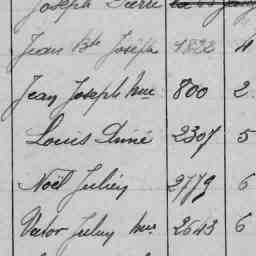 Joseph Pierre
Jean Bte Joseph 1822 4
Jean Joseph 800 2
Louis Aimé 2307 5
Noël Julien 2779 6
Victor 2643 6